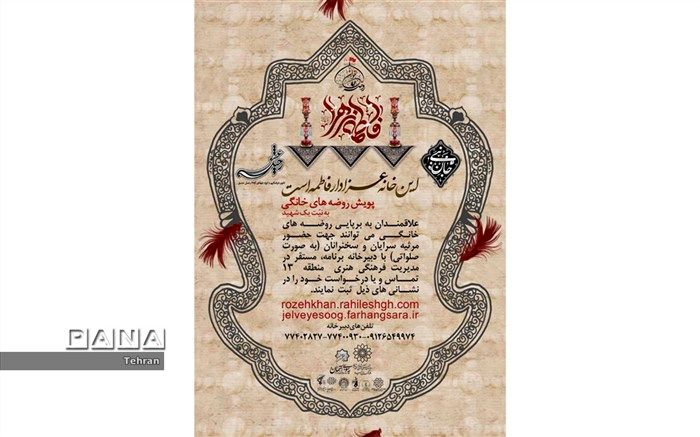 فاطمه الزهرا
این خانه عزادار فاطمه است
پویش روضه های خانگی
به نیت یک شهید
علاقمندان به برپایی روضه های
خانگی می توانند جهت حضور
مرثیه سرایان و سخنرانان (به صورت
صلواتی) با دبیرخانه برنامه، مستقر در
مدیریت فرهنگی هنری منطقه ۱۳
تماس و یا درخواست خود را در
نشانی های ذیل ثبت نمایند.
rozehkhan.rahileshgh.com
jelveyesoog.farhangsara.ir
تلفن های دبیرخانه
۷۷۴۰۲۸۲۷-۷۷۴۰۰۹۳۰-۰۹۱۲۶۵۴۹۹۷۴
PANA
Tehran